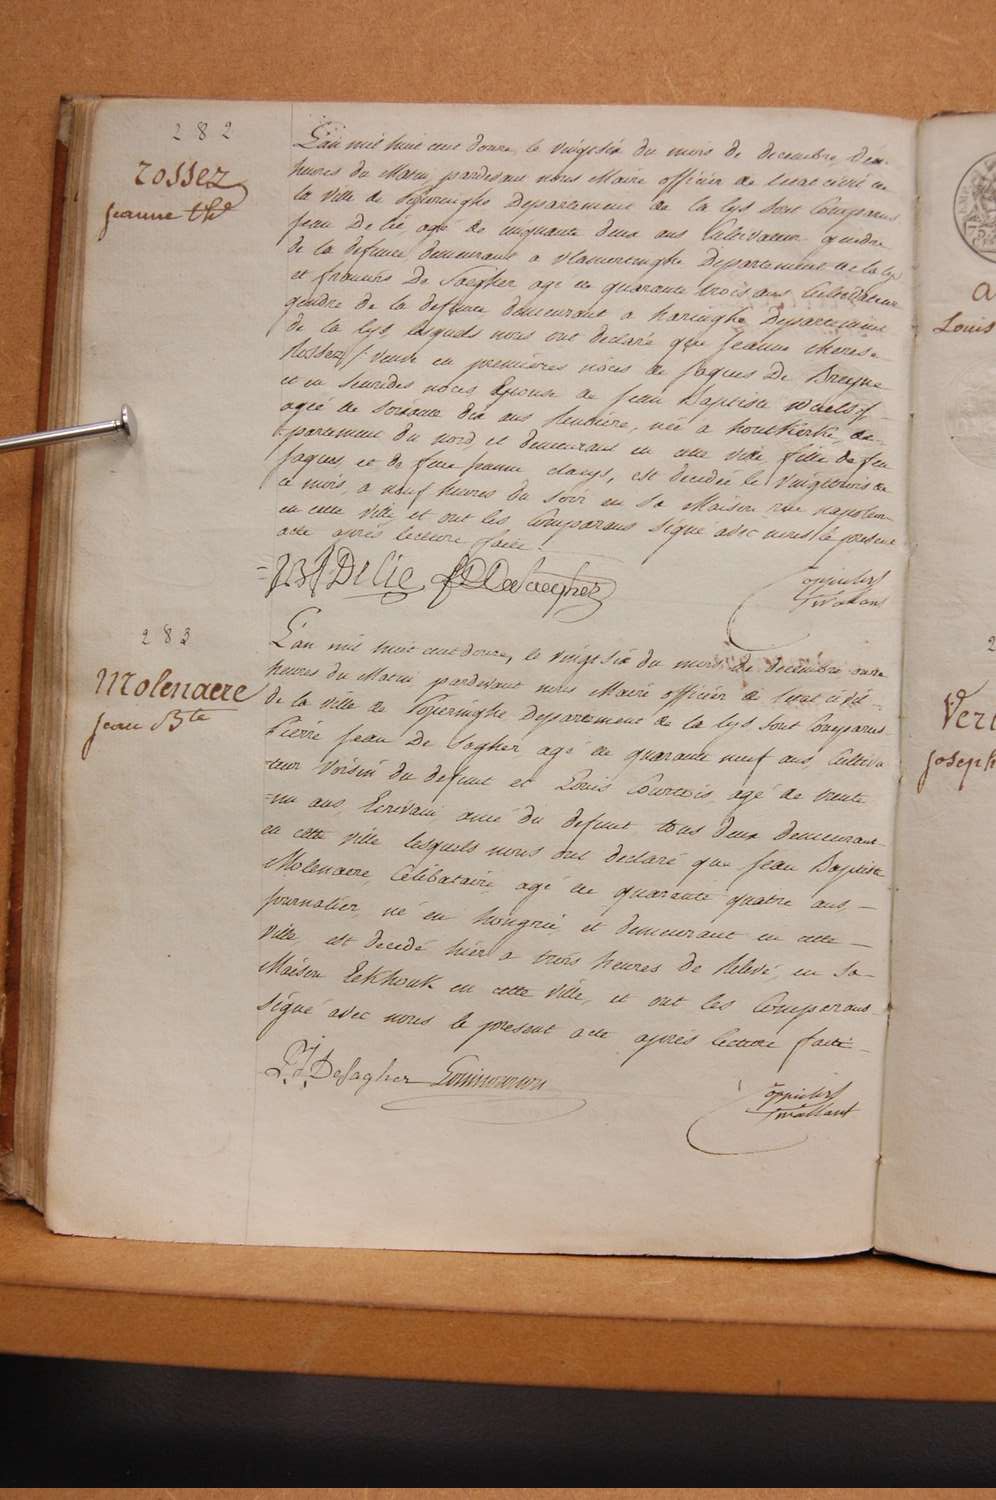 282
Rossez
Jeanne thé
L'an mil huit cent douze, le vingt six du mois de decembre, dix
heures du Matin, pardevant nous Maire officier de l'etat civil de
la ville de Poperinghe Departement de la Lys sont Comparus
Jean De lie, agé de cinquante deux ans Cultivateur gendre
de la defunte, demeurant a vlamertinghe Departement de la Lys
et francois De Saegher agé de quarante trois ans Cultivateur
gendre de la defunte demeurant a haringhe Departement
de la Lys, lesquels nous ont declaré que Jeanne therese
Rossez, veuve en premieres noces de Jaques De Breyne
et en secondes noces Epouse de Jean Baptiste Waels
agée de soixante dix ans, née a houtkerke, de-
partement du nord, et demeurant en cette ville fille de feu
Jaques, et de feue Jeanne claeys, est decedée le vingt trois de
ce mois, a neuf heures du soir en sa Maison rue napoleon
en cette ville et ont les Comparans signé avec nous le present
acte après lecture faite.
JB DeLie DeSaegher
283
Molenaere
Jean Bte
L'an mil huit cent douze, le vingt six du mois de decembre onze
heures du Matin pardevant nous Maire officier de l'etat civil
de la ville de Poperinghe Departement de la Lys sont Comparus
Pierre Jean De Sagher, agé de quarante neuf ans, Cultiva
-teur Voisin du defunt et Louis Courtois agé de trente
-un ans, Ecrivain, ami du defunt tous deux demeurant
en cette ville lesquels nous ont declaré que Jean Baptiste
Molenaere, Célibataire, agé de quarante quatre ans,
journalier, né en hongrie et demeurant en cette
ville, est decedé hier a trois heures de relevé, en sa
Maison Eekhouk en cette ville, et ont les Comparans
signé avec nous le present acte après lecture faite
P. J. DeSagher
Louis
Joseph